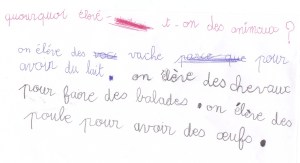 quourquoi élevé-t-on des animaux ?
on élève des vache pour
avoir du lait. on élève des chevaux
pour faire des balades. on élève des
poule pour avoir des œufs.